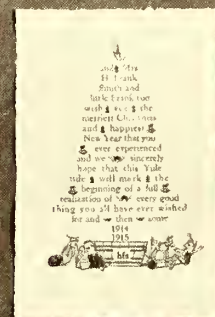 and Mrs
H Frank
Smith and
little Frank too
wish you the
merriest Christmas
and happiest
New Year that you
ever experienced
and we sincerely
hope that this Yule
tide will mark the
beginning of a full
realization of every good
thing you all have ever wished
for and then some
1914
1915
hfs